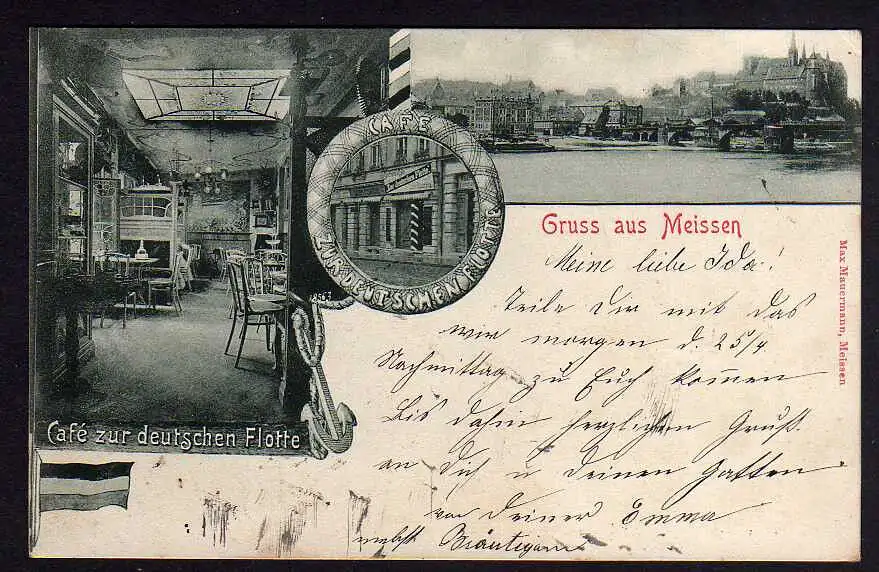 CAFÉ
ZUR DEUTSCHEN FLOTTE
Café zur deutschen Flotte
Gruss aus Meissen
Max Mauermann, Meissen
Meine liebe Ida!
Teile Dir mit das
wir morgen d. 25/4
Nachmittag zu Euch kom̄en
Bis dahin herzlichen Gruß.
an Dich u deinen Gatten
von Deiner Emma
nebst Bräutigam